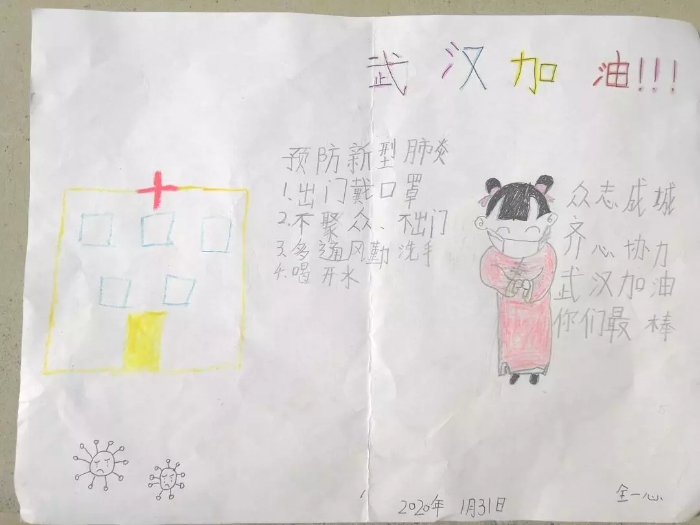 武汉加油!!!
预防新型肺炎
1.出门戴口罩
2.不聚众、不出门
3.多通风勤洗手
4.喝开水
众志成城
齐心协力
武汉加油
你们最棒
2020年 1月31日
全一心